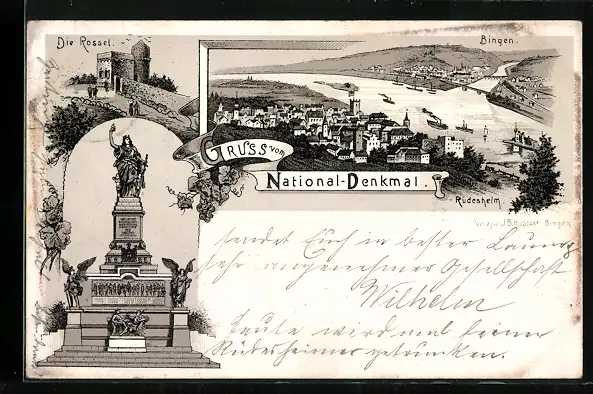 Die Rossel.
Bingen.
GRUSS vom
National-Denkmal.
Rüdesheim
Verlag J.B. Bingen
sendet Euch in bester Laune
sehr angenehmer Gesellschaft
Wilhelm
Heute wird mal feiner
Rüdesheimer getrunken.